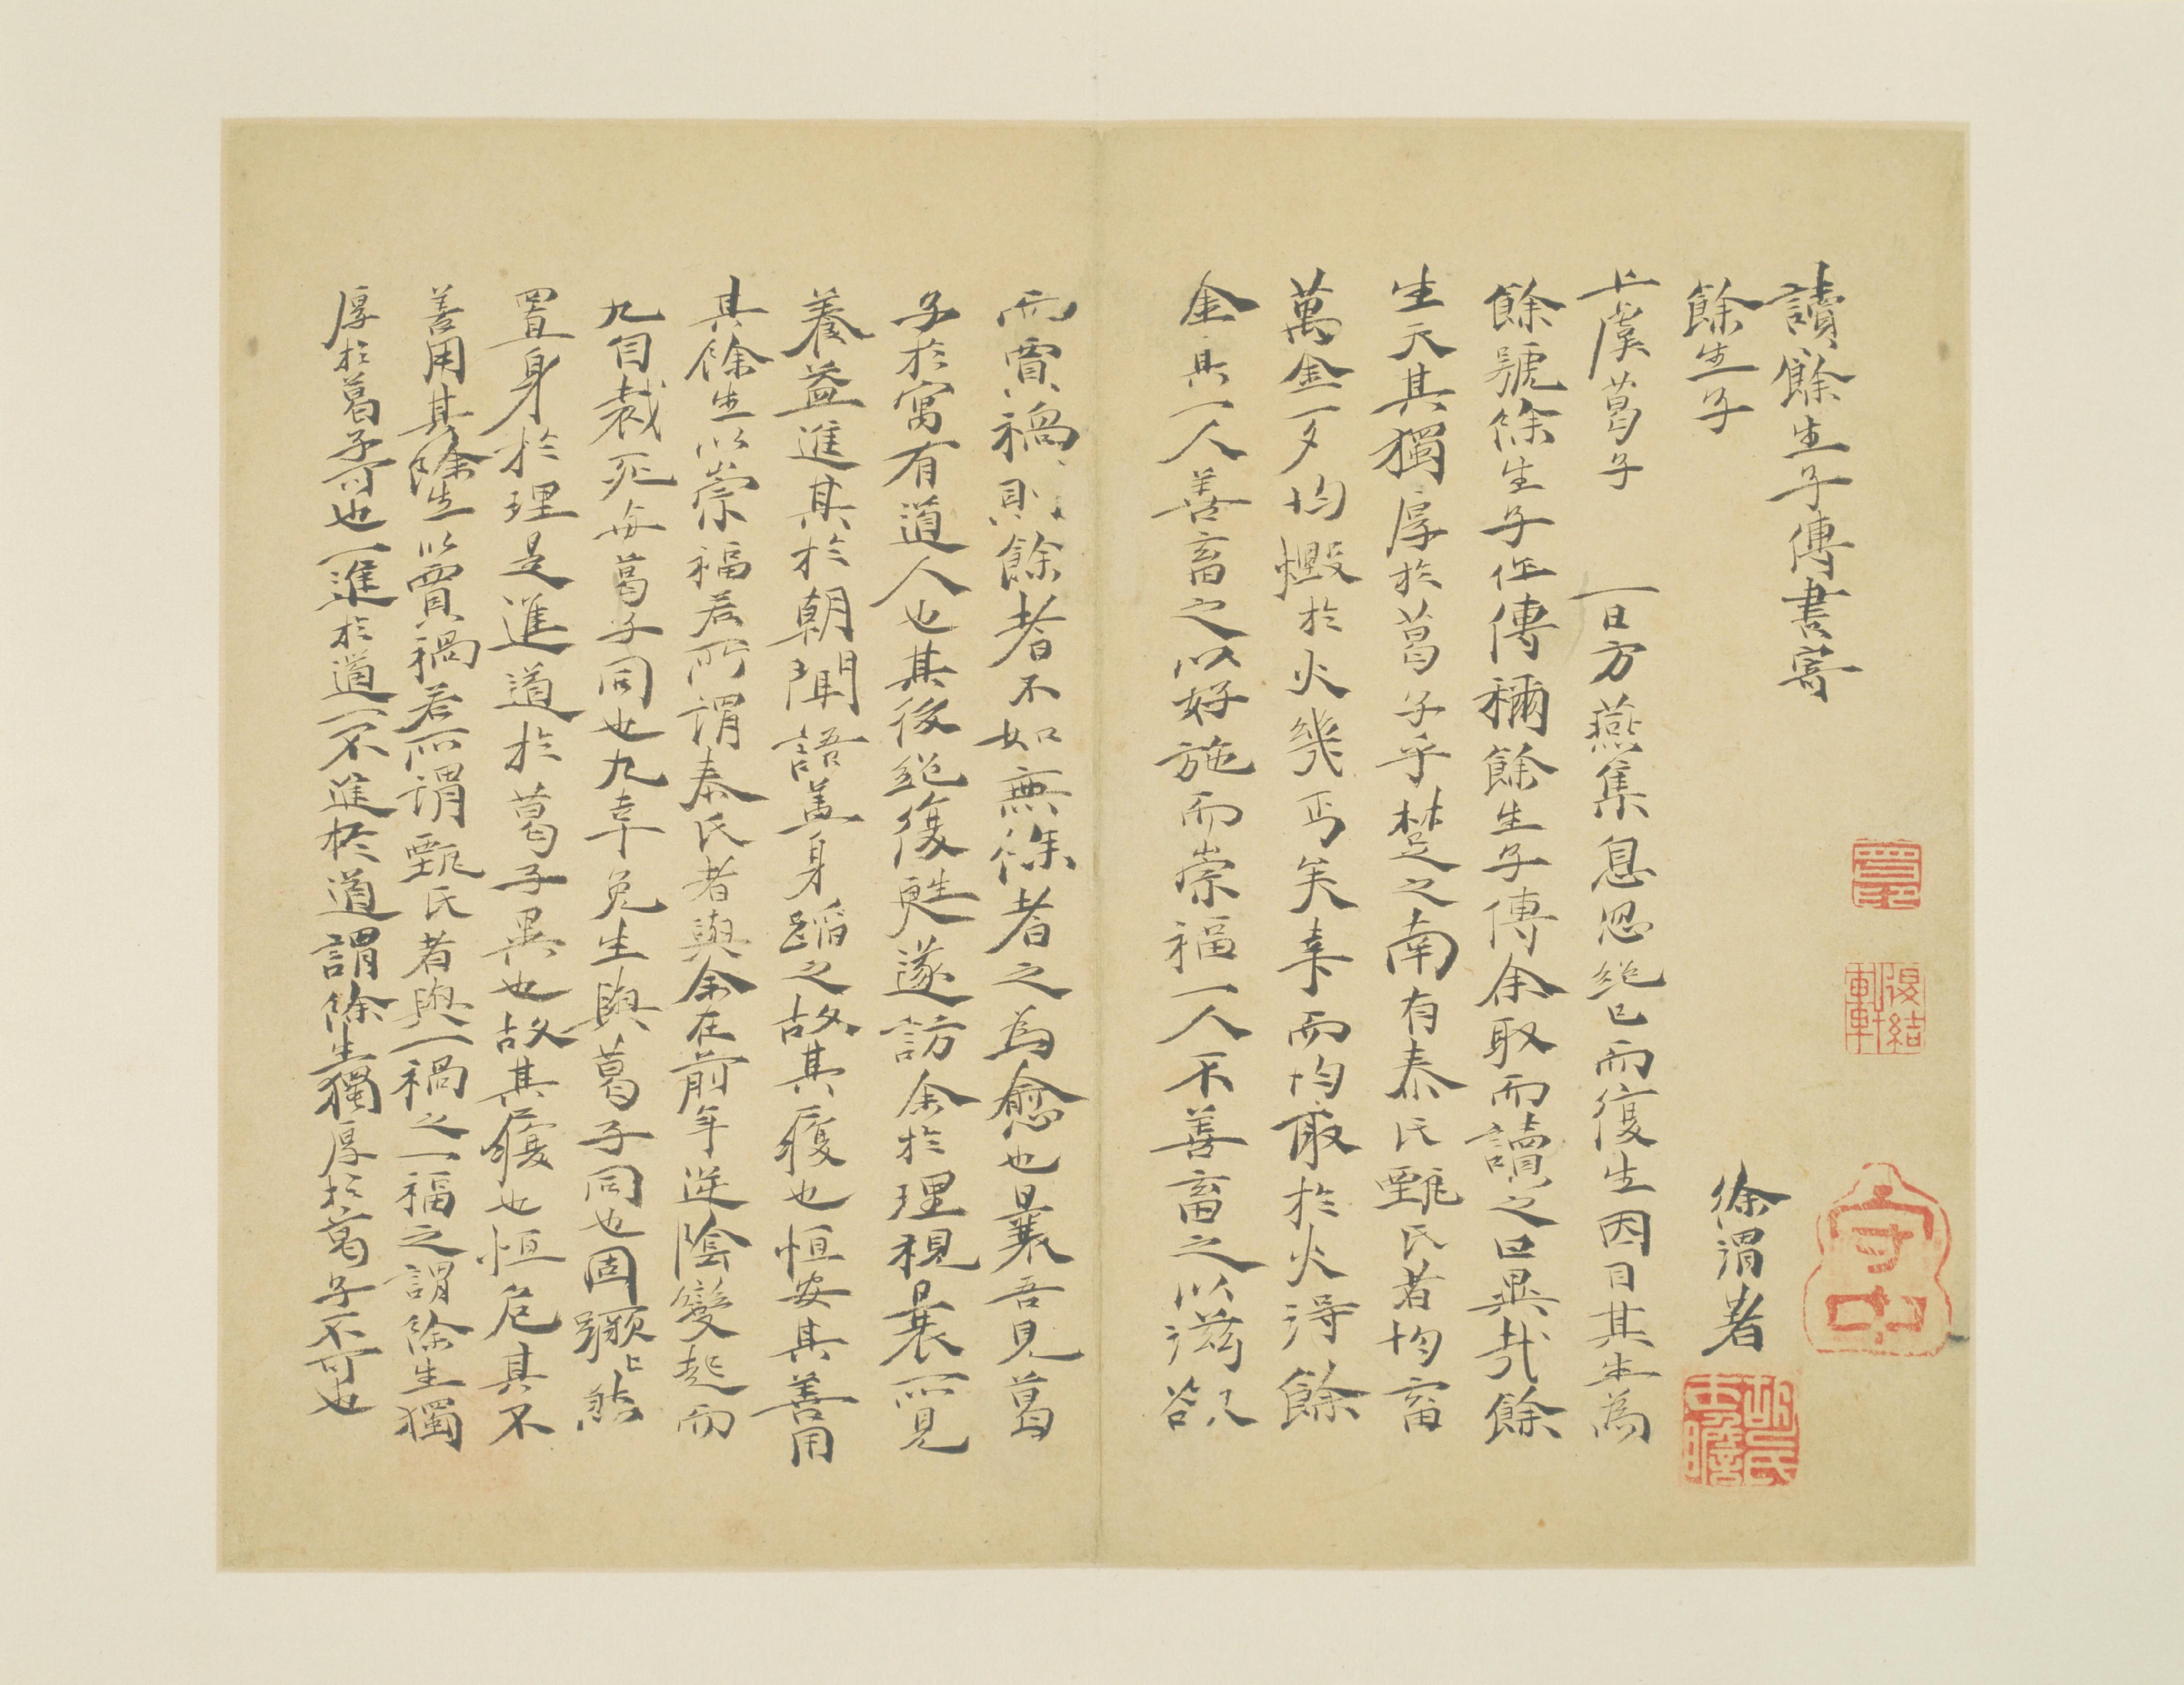 讀餘生子傳書寄
餘生子
徐渭著
上虞葛子 一日方燕集息忽絕已而復生因目其生為
餘號餘生子作傳稱餘生子傳余取而讀之曰異哉餘
生天其獨厚於葛子乎楚之南有秦氏甄氏者均畜
萬金一夕均燬於火幾丐矣幸而均取於火得餘
金其一人善畜之以好施而崇福一人不善畜之以滋欲
而賈禍則餘者不如無餘者之為愈也曩吾見葛
子於寓有道人也其後絕復甦遂訪余於理視曩所見
養益進其於朝聞語蓋身蹈之故其履也恒安其善用
其餘生以崇福若所謂秦氏者與余在前年逆陰變起而
九自裁死每葛子同也九幸免生與葛子同也固蹶然
置身於理是進道於葛子異也故其履也恒危其不
善用其餘生以賈禍若所謂甄氏者與一禍之一福之謂餘生獨
厚於葛子可也一進於道一不進於道謂餘生獨厚於葛子不可也
守中